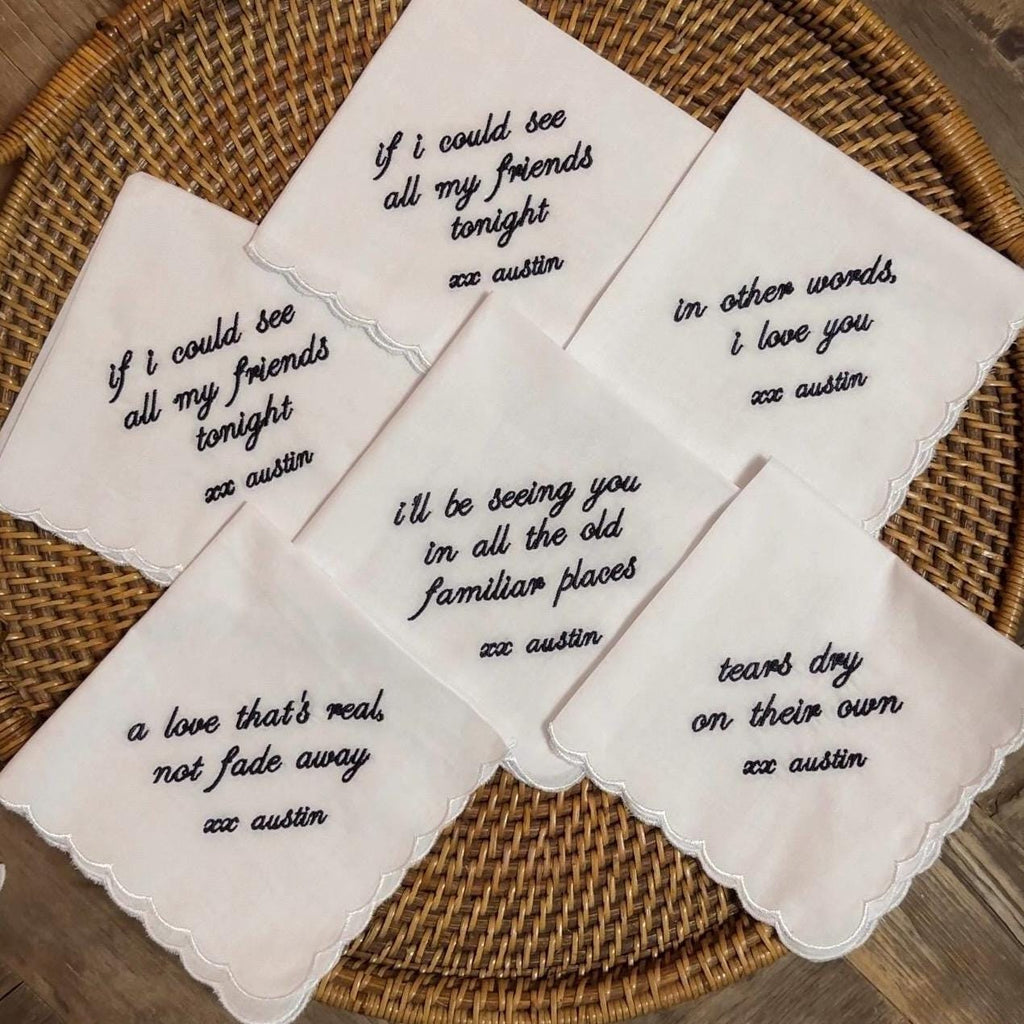 if i could see
all my friends
tonight
xx austin
in other words,
i love you
xx austin
if i could see
all my friends
tonight
xx austin
i'll be seeing you
in all the old
familiar places
xx austin
tears dry
on their own
xx austin
a love that's real,
not fade away
xx austin